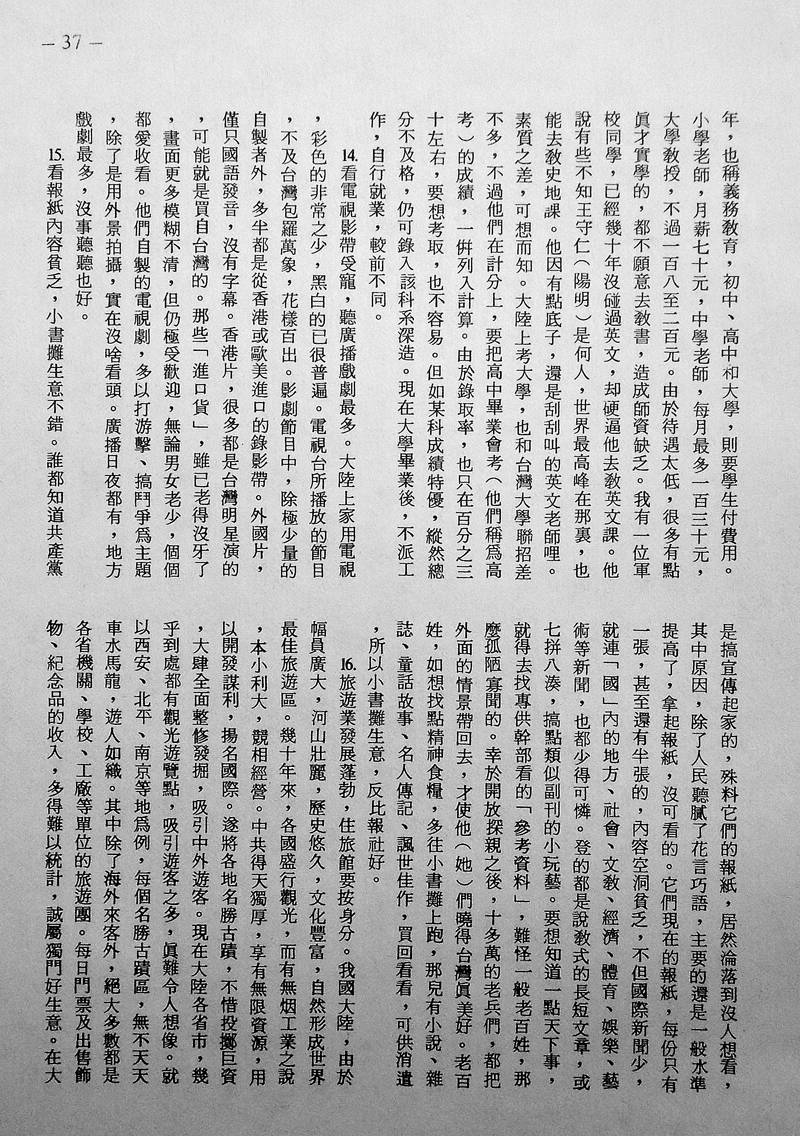 — 37 —
年，也稱義務教育，初中、高中和大學，則要學生付費用。
小學老師，月薪七十元，中學老師，每月最多一百三十元，
大學教授，不過一百八至二百元。由於待遇太低，很多有點
眞才實學的，都不願意去教書，造成師資缺乏。我有一位軍
校同學，已經幾十年沒碰過英文，却硬逼他去教英文課。他
說有些不知王守仁（陽明）是何人，世界最高峰在那裏，也
能去教史地課。他因有點底子，還是刮刮叫的英文老師哩。
素質之差，可想而知。大陸上考大學，也和台灣大學聯招差
不多，不過他們在計分上，要把高中畢業會考（他們稱爲高
考）的成績，一倂列入計算。由於錄取率，也只在百分之三
十左右，要想考取，也不容易。但如某科成績特優，縱然總
分不及格，仍可錄入該科系深造。現在大學畢業後，不派工
作，自行就業，較前不同。
14.看電視影帶受寵，聽廣播戲劇最多。大陸上家用電視
，彩色的非常之少，黑白的已很普遍。電視台所播放的節目
，不及台灣包羅萬象，花樣百出。影劇節目中，除極少量的
自製者外，多半都是從香港或歐美進口的錄影帶。外國片，
僅只國語發音，沒有字幕。香港片，很多都是台灣明星演的
，可能就是買自台灣的。那些「進口貨」，雖已老得沒牙了
，畫面更多模糊不清，但仍極受歡迎，無論男女老少，個個
都愛收看。他們自製的電視劇，多以打游擊、搞鬥爭爲主題
，除了是用外景拍攝，實在沒啥看頭。廣播日夜都有，地方
戲劇最多，沒事聽聽也好。
15.看報紙內容貧乏，小書攤生意不錯。誰都知道共產黨
是搞宣傳起家的，殊料它們的報紙，居然淪落到沒人想看，
其中原因，除了人民聽膩了花言巧語，主要的還是一般水準
提高了，拿起報紙，沒可看的。它們現在的報紙，每份只有
一張，甚至還有半張的，內容空洞貧乏，不但國際新聞少，
就連「國」內的地方、社會、文教、經濟、體育、娛樂、藝
術等新聞，也都少得可憐。登的都是說敎式的長短文章，或
七拼八湊，搞點類似副刊的小玩藝。要想知道一點天下事，
就得去找專供幹部看的「參考資料」，難怪一般老百姓，那
麼孤陋寡聞的。幸於開放探親之後，十多萬的老兵們，都把
外面的情景帶回去，才使他（她）們曉得台灣眞美好。老百
姓，如想找點精神食糧，多往小書攤上跑，那兒有小說、雜
誌、童話故事、名人傳記、諷世佳作，買回看看，可供消遣
，所以小書攤生意，反比報社好。
16.旅遊業發展蓬勃，住旅館要按身分。我國大陸，由於
幅員廣大，河山壯麗，歷史悠久，文化豐富，自然形成世界
最佳旅遊區。幾十年來，各國盛行觀光，而有無烟工業之說
，本小利大，競相經營。中共得天獨厚，享有無限資源，用
以開發謀利，揚名國際。遂將各地名勝古蹟，不惜投擲巨資
，大肆全面整修發掘，吸引中外遊客。現在大陸各省市，幾
乎到處都有觀光遊覽點，吸引遊客之多，眞難令人想像。就
以西安、北平、南京等地爲例，每個名勝古蹟區，無不天天
車水馬龍，遊人如織。其中除了海外來客外，絕大多數都是
各省機關、學校、工廠等單位的旅遊團。每日門票及出售飾
物、紀念品的收入，多得難以統計，誠屬獨門好生意。在大